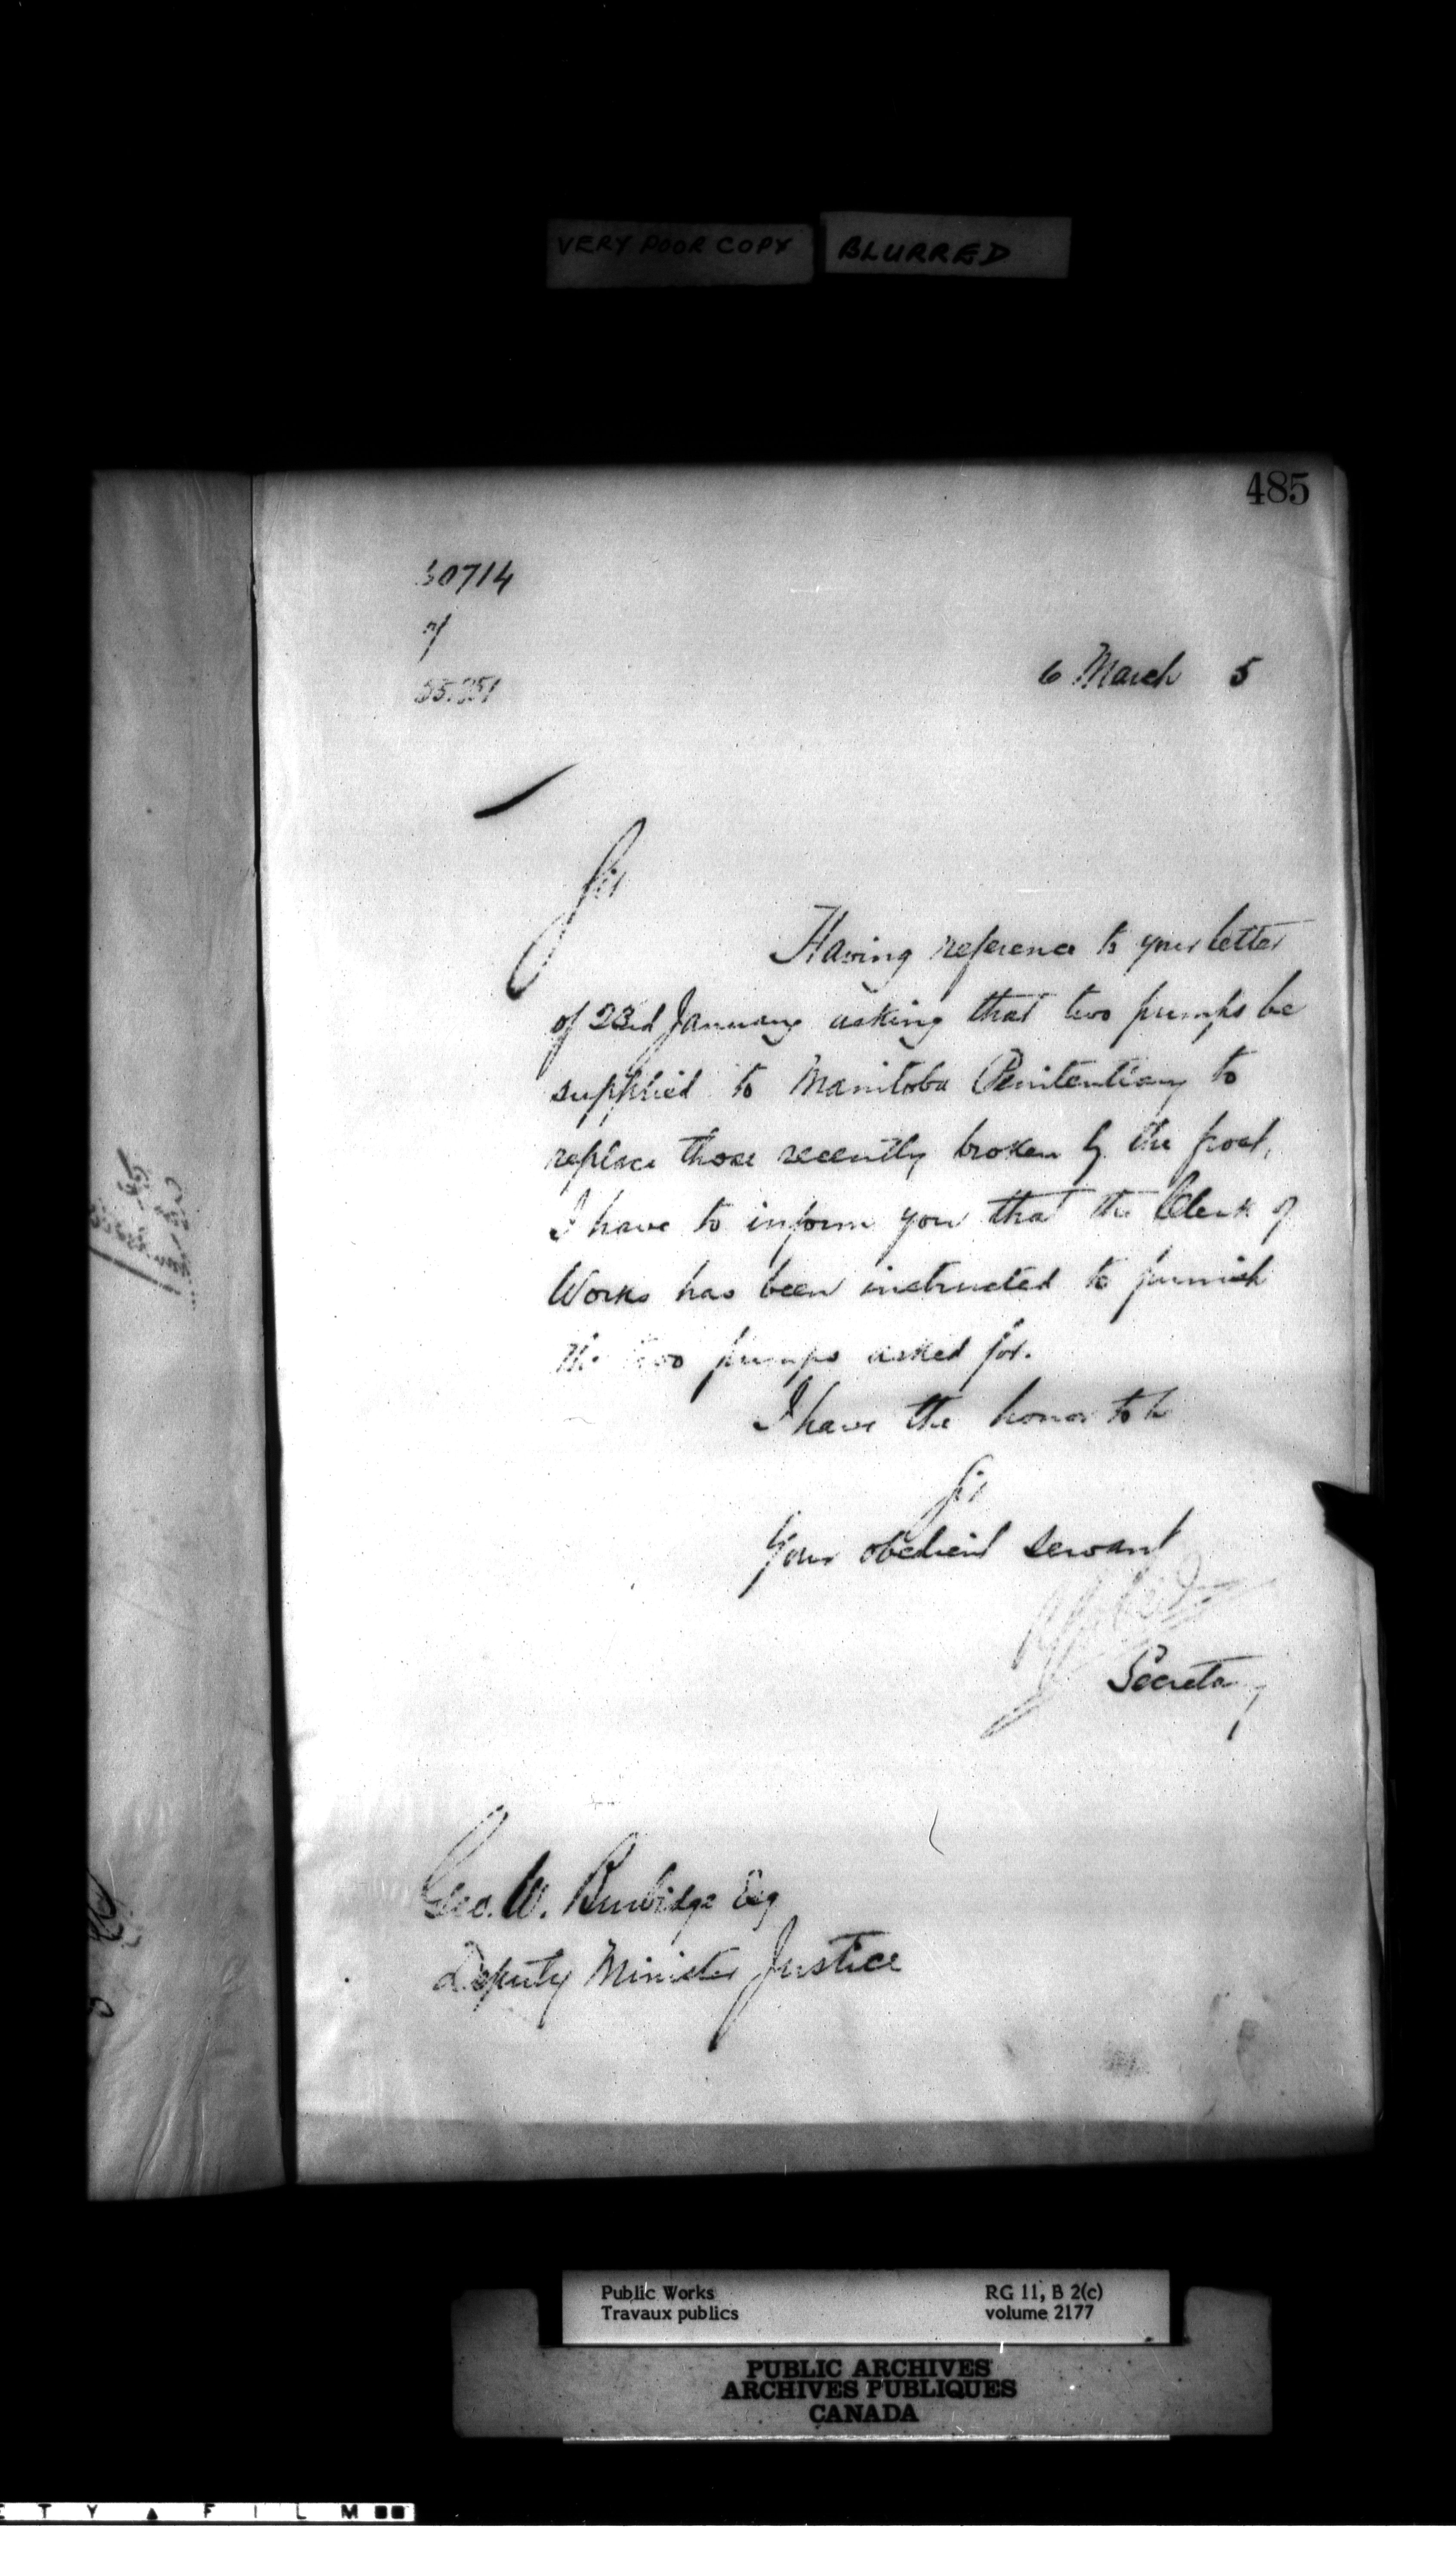 VERY POOR COPY BLURRED
485
30714
6 March 5
Sir
Having reference to your letter
of 23rd January asking that two pumps be
supplied to Manitoba Penitentiary to
replace those recently broken by the frost,
I have to inform you that the Clerk of
Works has been instructed to furnish
the two pumps asked for.
I have the honor to be
Sir
Your obedient servant
Secretary
Geo. W. Burbidge Esq
Deputy Minister Justice
Public Works RG 11, B 2(c)
Travaux publics volume 2177
PUBLIC ARCHIVES
ARCHIVES PUBLIQUES
CANADA
E T Y ▲ F I L M